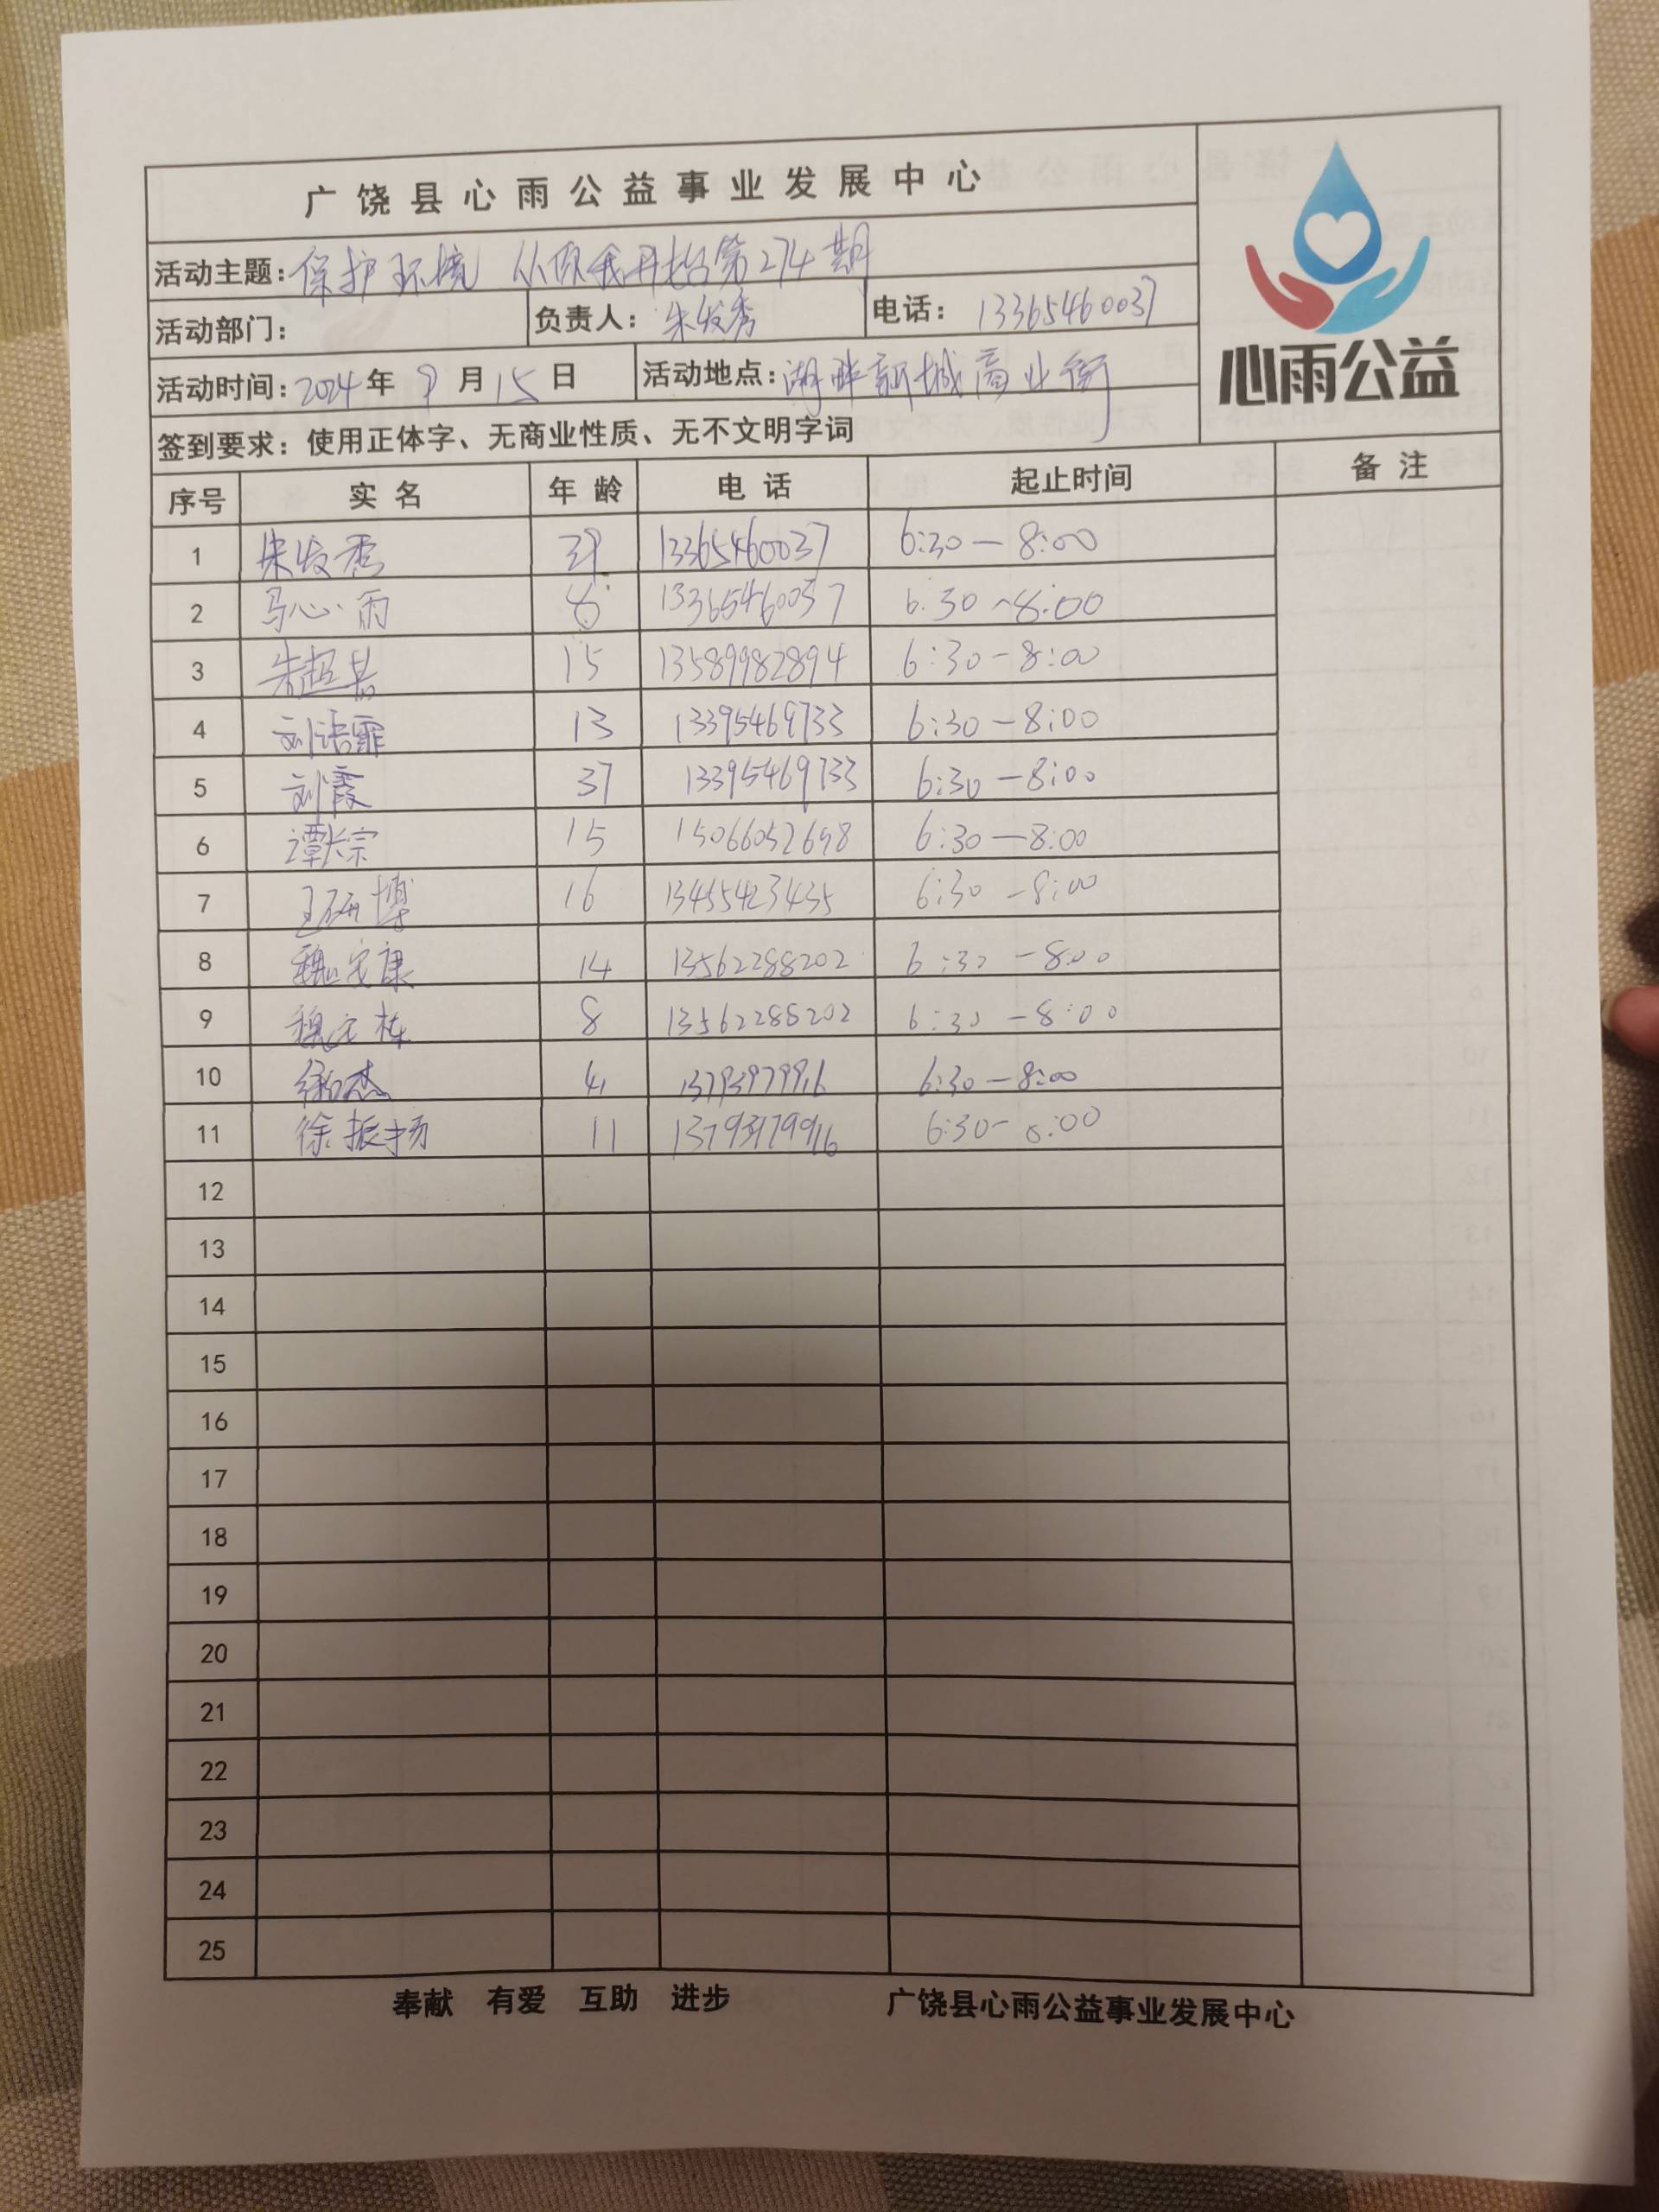 广饶县心雨公益事业发展中心
活动主题:保护环境 从你我开始第274期
活动部门: 负责人:朱发秀 电话:13365460037
活动时间:2024年9月15日 活动地点:湖畔新城商业街
心雨公益
签到要求:使用正体字、无商业性质、无不文明字词
序号 实名 年龄 电话 起止时间 备注
1 朱发秀 39 13365460037 6:30—8:00
2 马心雨 8 13365460037 6:30~8:00
3 朱超 15 13589982894 6:30-8:00
4 刘语霏 13 13395469733 6:30-8:00
5 刘霞 37 13395469733 6:30-8:00
6 谭宗 15 15066052698 6:30—8:00
7 王研博 16 13455423435 6:30-8:00
8 魏宏康 14 13562288202 6:30-8:00
9 魏宏栋 8 13562288202 6:30-8:00
10 徐杰 41 13793979916 6:30—8:00
11 徐振扬 11 13793979916 6:30-8:00
12
13
14
15
16
17
18
19
20
21
22
23
24
25
奉献 有爱 互助 进步 广饶县心雨公益事业发展中心